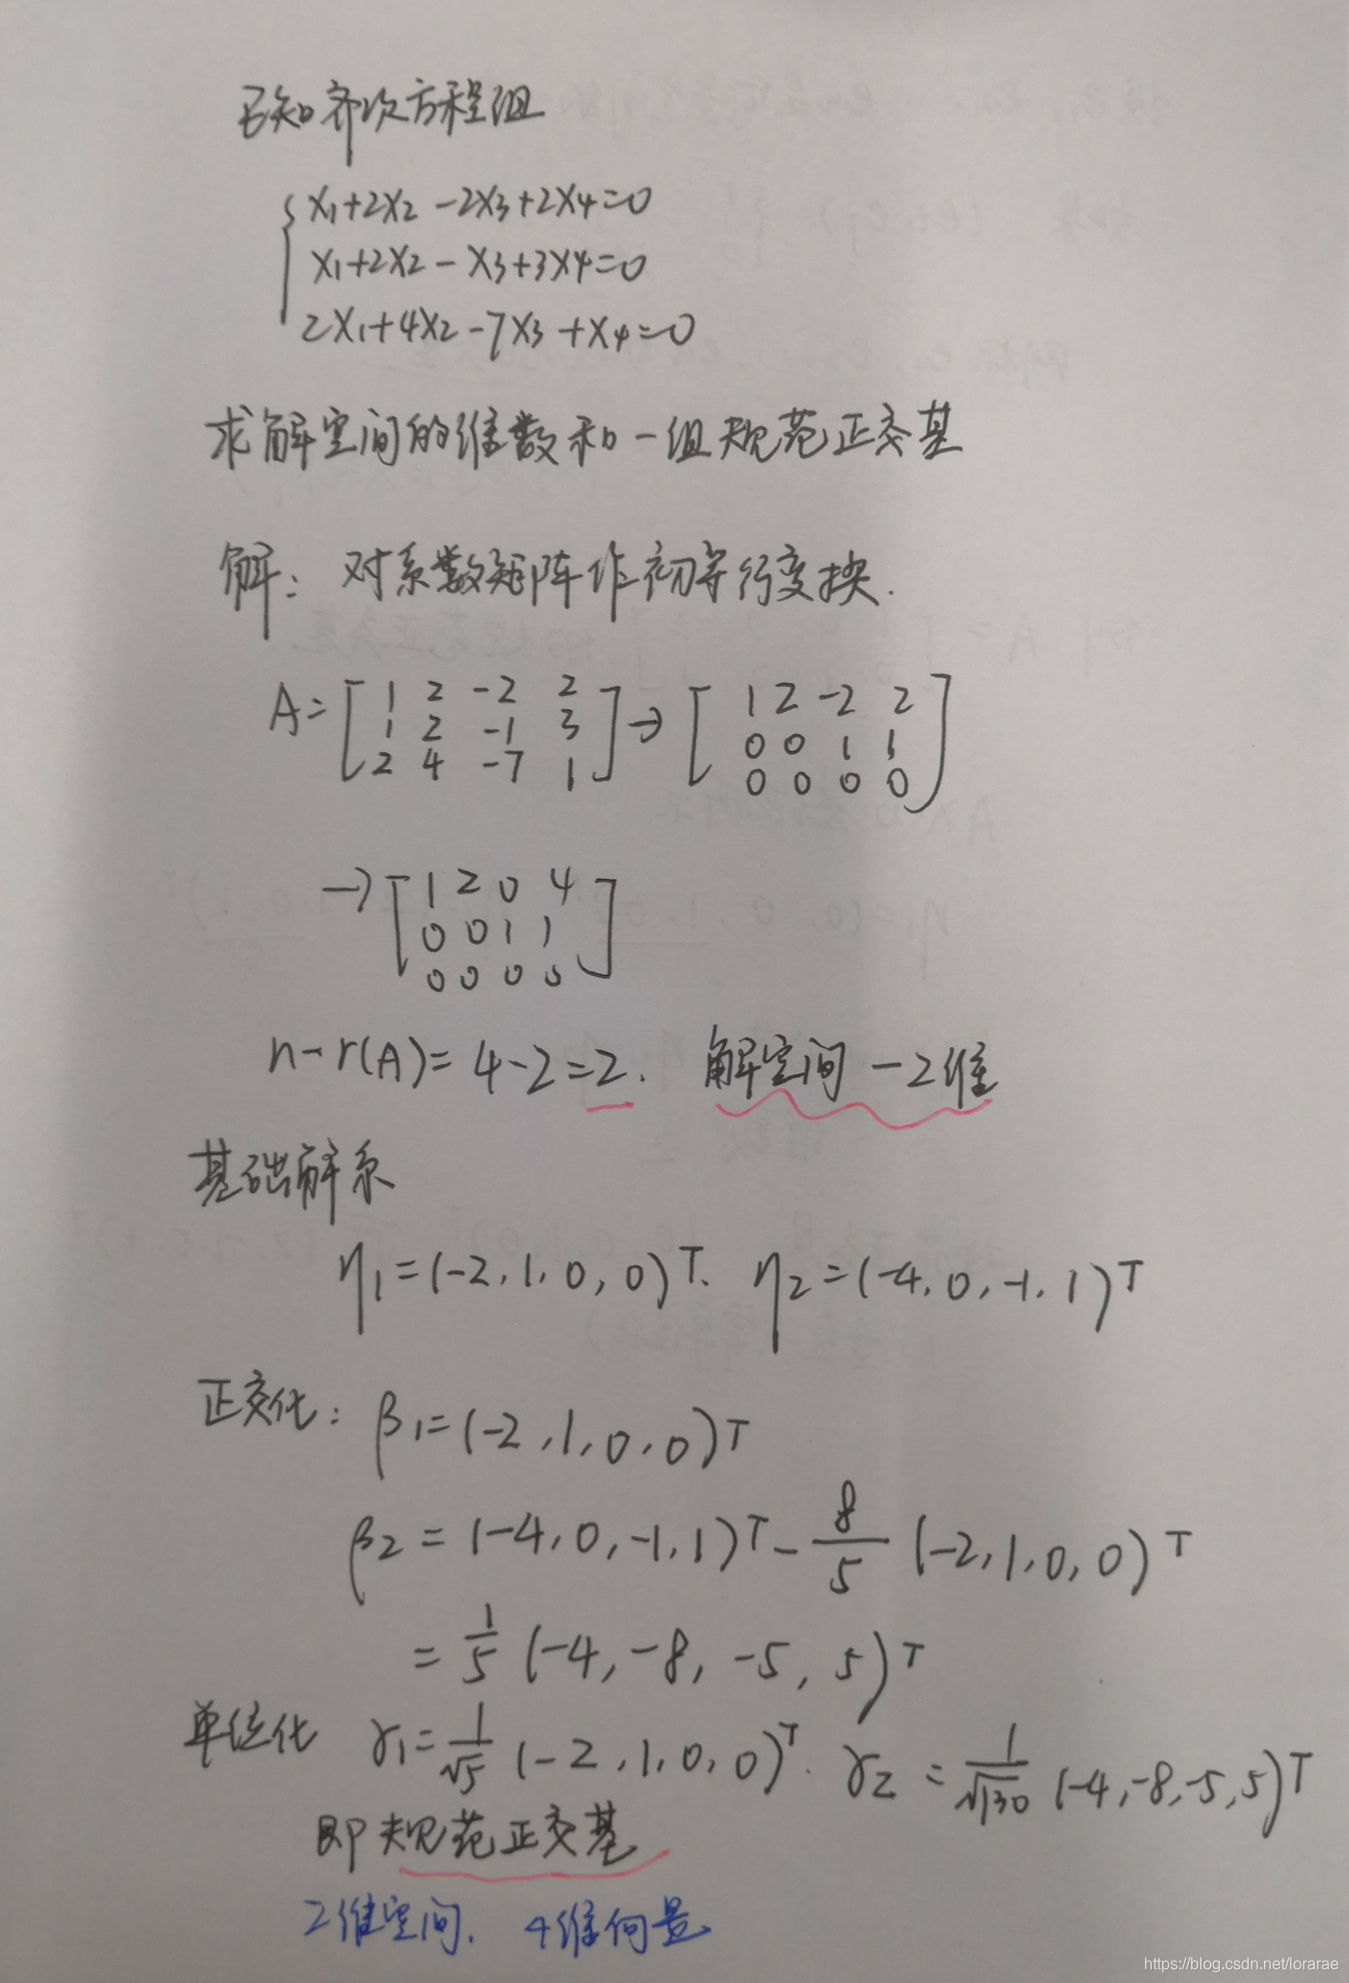 已知齐次方程组
x1+2x2-2x3+2x4=0
x1+2x2-x3+3x4=0
2x1+4x2-7x3+x4=0
求解空间的维数和一组规范正交基
解：对系数矩阵作初等行变换.
A=[1 2 -2 2 → [1 2 -2 2
1 2 -1 3 0 0 1 1
2 4 -7 1] 0 0 0 0]
→ [1 2 0 4
0 0 1 1
0 0 0 0]
n-r(A)=4-2=2. 解空间-2维
基础解系
η1=(-2,1,0,0)T. η2=(-4,0,-1,1)T
正交化：β1=(-2,1,0,0)T
β2=(-4,0,-1,1)T-8/5(-2,1,0,0)T
=1/5(-4,-8,-5,5)T
单位化 γ1=1/√5(-2,1,0,0)T. γ2=1/√130(-4,-8,-5,5)T
即规范正交基
2维空间. 4维向量
https://blog.csdn.net/lorarae